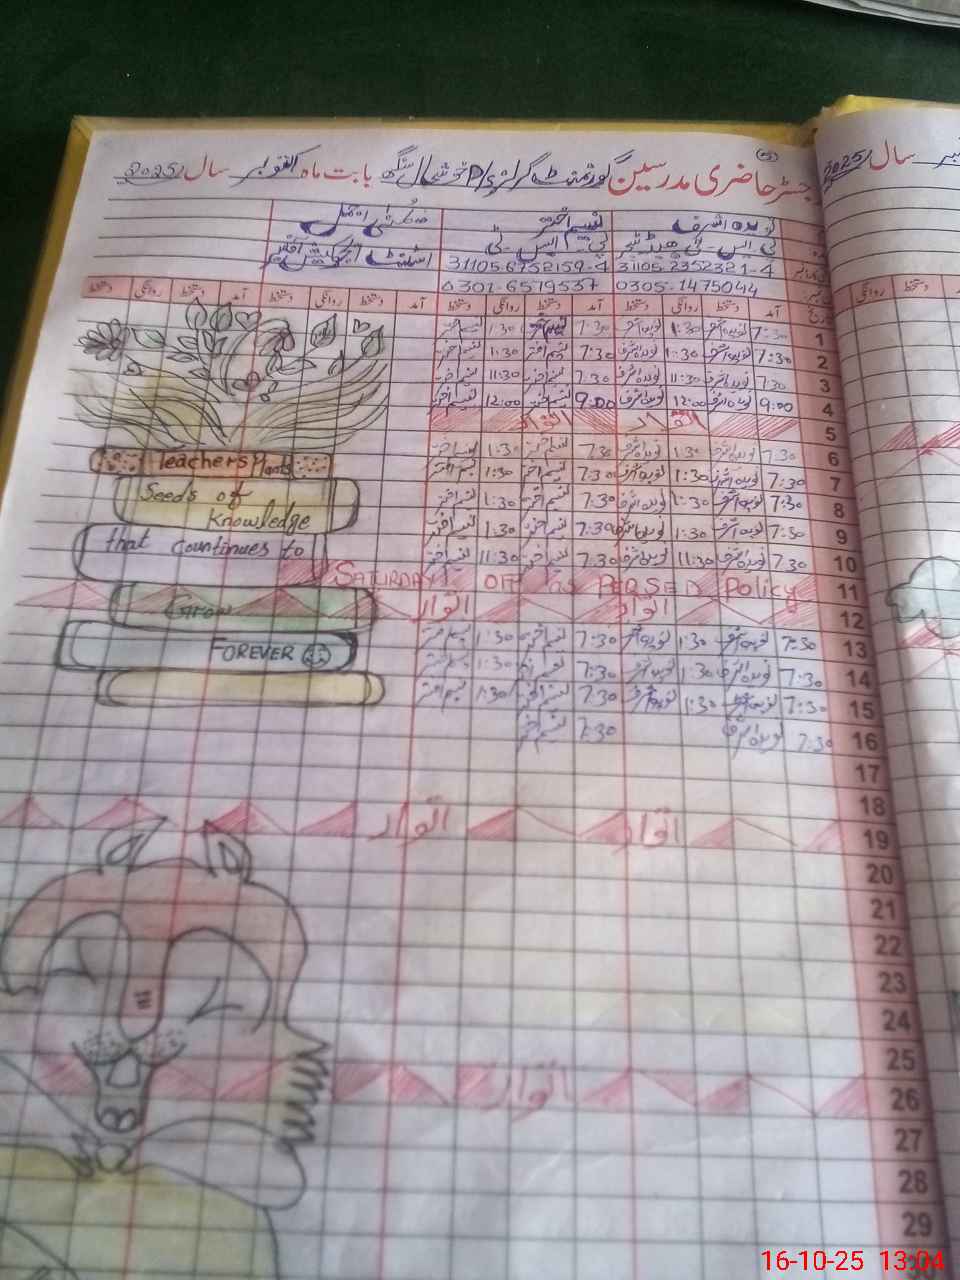 رجسٹر حاضری مدرسین گورنمنٹ گرلز بابت ماہ اکتوبر سال 2025
سال 2025
نویدہ اشرف نسیم اختر
31105-2352321-4 31105-6752159-4
0305-1475044 0301-6519537
آمد دستخط روانگی دستخط آمد دستخط روانگی دستخط آمد دستخط روانگی دستخط آمد دستخط روانگی دستخط
1 7:30 نویدہ اشرف 1:30 نویدہ اشرف 7:30 نسیم اختر 1:30 نسیم اختر
2 7:30 نویدہ اشرف 1:30 نویدہ اشرف 7:30 نسیم اختر 1:30 نسیم اختر
3 7:30 نویدہ اشرف 11:30 نویدہ اشرف 7:30 نسیم اختر 11:30 نسیم اختر
4 9:00 نویدہ اشرف 12:00 نویدہ اشرف 9:00 نسیم اختر 12:00 نسیم اختر
5 اتوار اتوار
6 7:30 نویدہ اشرف 1:30 نویدہ اشرف 7:30 نسیم اختر 1:30 نسیم اختر
7 7:30 نویدہ اشرف 1:30 نویدہ اشرف 7:30 نسیم اختر 1:30 نسیم اختر
8 7:30 نویدہ اشرف 1:30 نویدہ اشرف 7:30 نسیم اختر 1:30 نسیم اختر
9 7:30 نویدہ اشرف 1:30 نویدہ اشرف 7:30 نسیم اختر 1:30 نسیم اختر
10 7:30 نویدہ اشرف 11:30 نویدہ اشرف 7:30 نسیم اختر 11:30 نسیم اختر
11 SATURDAY OFF AS PER SED Policy
12 اتوار اتوار
13 7:30 نویدہ اشرف 1:30 نویدہ اشرف 7:30 نسیم اختر 1:30 نسیم اختر
14 7:30 نویدہ اشرف 1:30 نویدہ اشرف 7:30 نسیم اختر 1:30 نسیم اختر
15 7:30 نویدہ اشرف 1:30 نویدہ اشرف 7:30 نسیم اختر 1:30 نسیم اختر
16 7:30 نویدہ اشرف 7:30 نسیم اختر
17
18
19 اتوار اتوار
20
21
22
23
24
25
26 اتوار
27
28
29
Teachers Plant
Seeds of
Knowledge
that countinues to
Grow
FOREVER
16-10-25 13:04